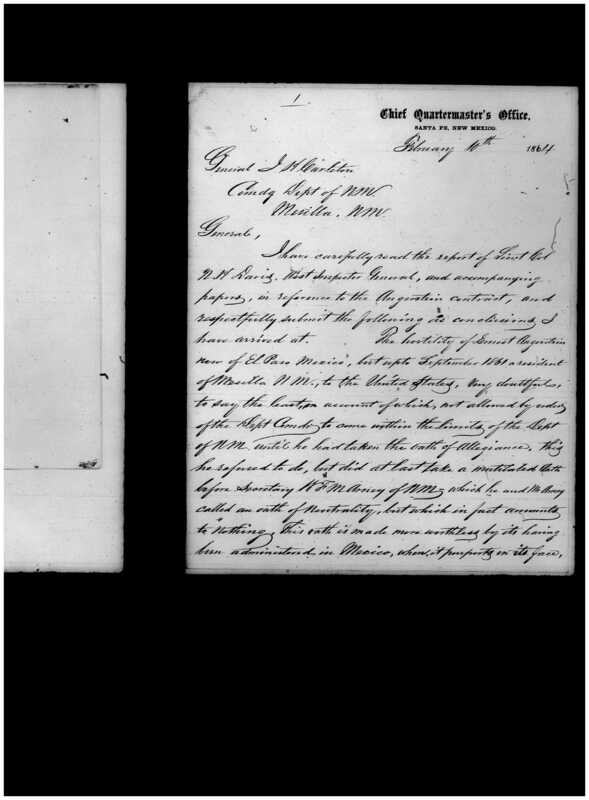 1
Chief Quartermaster's Office,
SANTA FE, NEW MEXICO.
February 10th 1864
General J H Carleton
Comdg Dept of N.M.
Mesilla, N.M.
General,
I have carefully read the report of Lieut Col
N. H. Davis, Asst Inspector General, and accompanying
papers, in reference to the Augustein contract, and
respectfully submit the following as conclusions I
have arrived at. The hostility of Ernest Augustein
now of El Paso Mexico, but upto September 1861 a resident
of Mesilla N.M., to the United States, very doubtful,
to say the least, on account of which, not allowed by orders
of the Dept Comdr to come within the limits of the Dept
of N.M. until he had taken the oath of Allegiance, this
he refused to do, but did at last take a mutilated Oath
before Secretary W. F. M. Arney of N.M. which he and Mr Arney
called an oath of Neutrality, but which in fact amounts
to "nothing," This oath is made more worthless by its having
been administered in Mexico, when it purports on its face,